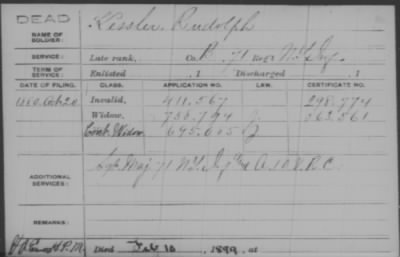 DEAD
NAME OF SOLDIER: Kessler, Rudolph
SERVICE: Late rank, Co. A, 71 Reg't N.Y. Inf.
TERM OF SERVICE: Enlisted , 1 Discharged , 1
DATE OF FILING. CLASS. APPLICATION NO. LAW. CERTIFICATE NO.
1880. Oct 20 Invalid, 411.567 298.774
Widow, 562.561
Cont. Widow 695.605
ADDITIONAL SERVICES: Maj. 71 N.Y. Inf V.R.C.
REMARKS:
Died Feb 10, 1899, at